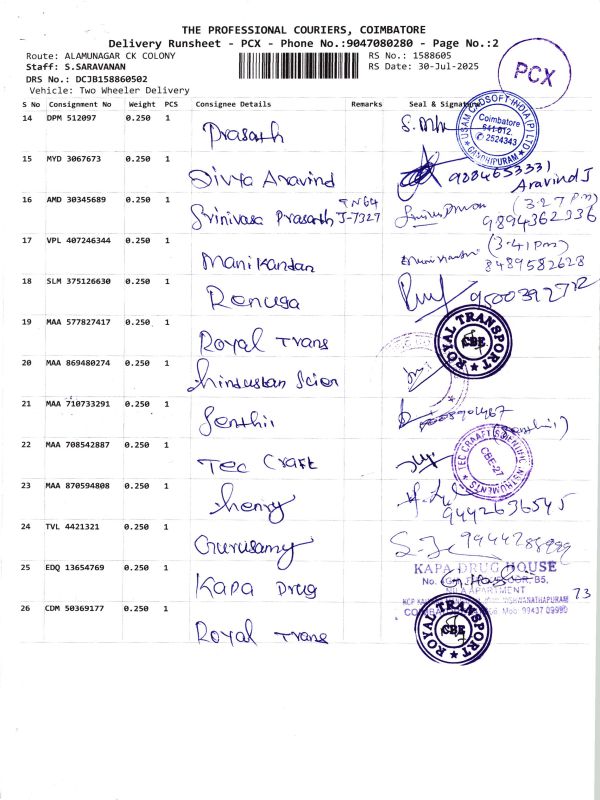 THE PROFESSIONAL COURIERS, COIMBATORE
Delivery Runsheet - PCX - Phone No.:9047080280 - Page No.:2
Route: ALAMUNAGAR CK COLONY
RS No.: 1588605
Staff: S.SARAVANAN
RS Date: 30-Jul-2025
DRS No.: DCJB158860502
Vehicle: Two Wheeler Delivery
PCX
S No Consignment No Weight PCS Consignee Details Remarks Seal & Signature
14 DPM 512097 0.250 1 Prasath
USAM CADSOFT INDIA (P) LTD
Coimbatore
641 012.
✆ 2524343
GANDHIPURAM
15 MYD 3067673 0.250 1 Divya Aravind 9884653331
Aravind J
16 AMD 30345689 0.250 1 Srinivasa Prasath TN64 J-7327 (3:27 pm)
9894362336
17 VPL 407246344 0.250 1 Manikandan (3:41 pm)
8489582628
18 SLM 375126630 0.250 1 Renuga
19 MAA 577827417 0.250 1 Royal Trans
ROYAL TRANSPORT
CBE
20 MAA 869480274 0.250 1 Hindustan Scien
21 MAA 710733291 0.250 1 Senthil
(Senthil)
22 MAA 708542887 0.250 1 Tec Craft
TEC CRAAFT SCIENTIFIC INSTRUMENTS
CBE-27
23 MAA 870594808 0.250 1 Shenry
9442636545
24 TVL 4421321 0.250 1 Gurusamy
25 EDQ 13654769 0.250 1 Kapa Drug
KAPA DRUG HOUSE
No. FLOOR, B5,
APARTMENT
Mob: 99437 09990
73
26 CDM 50369177 0.250 1 Royal Trans
ROYAL TRANSPORT
CBE